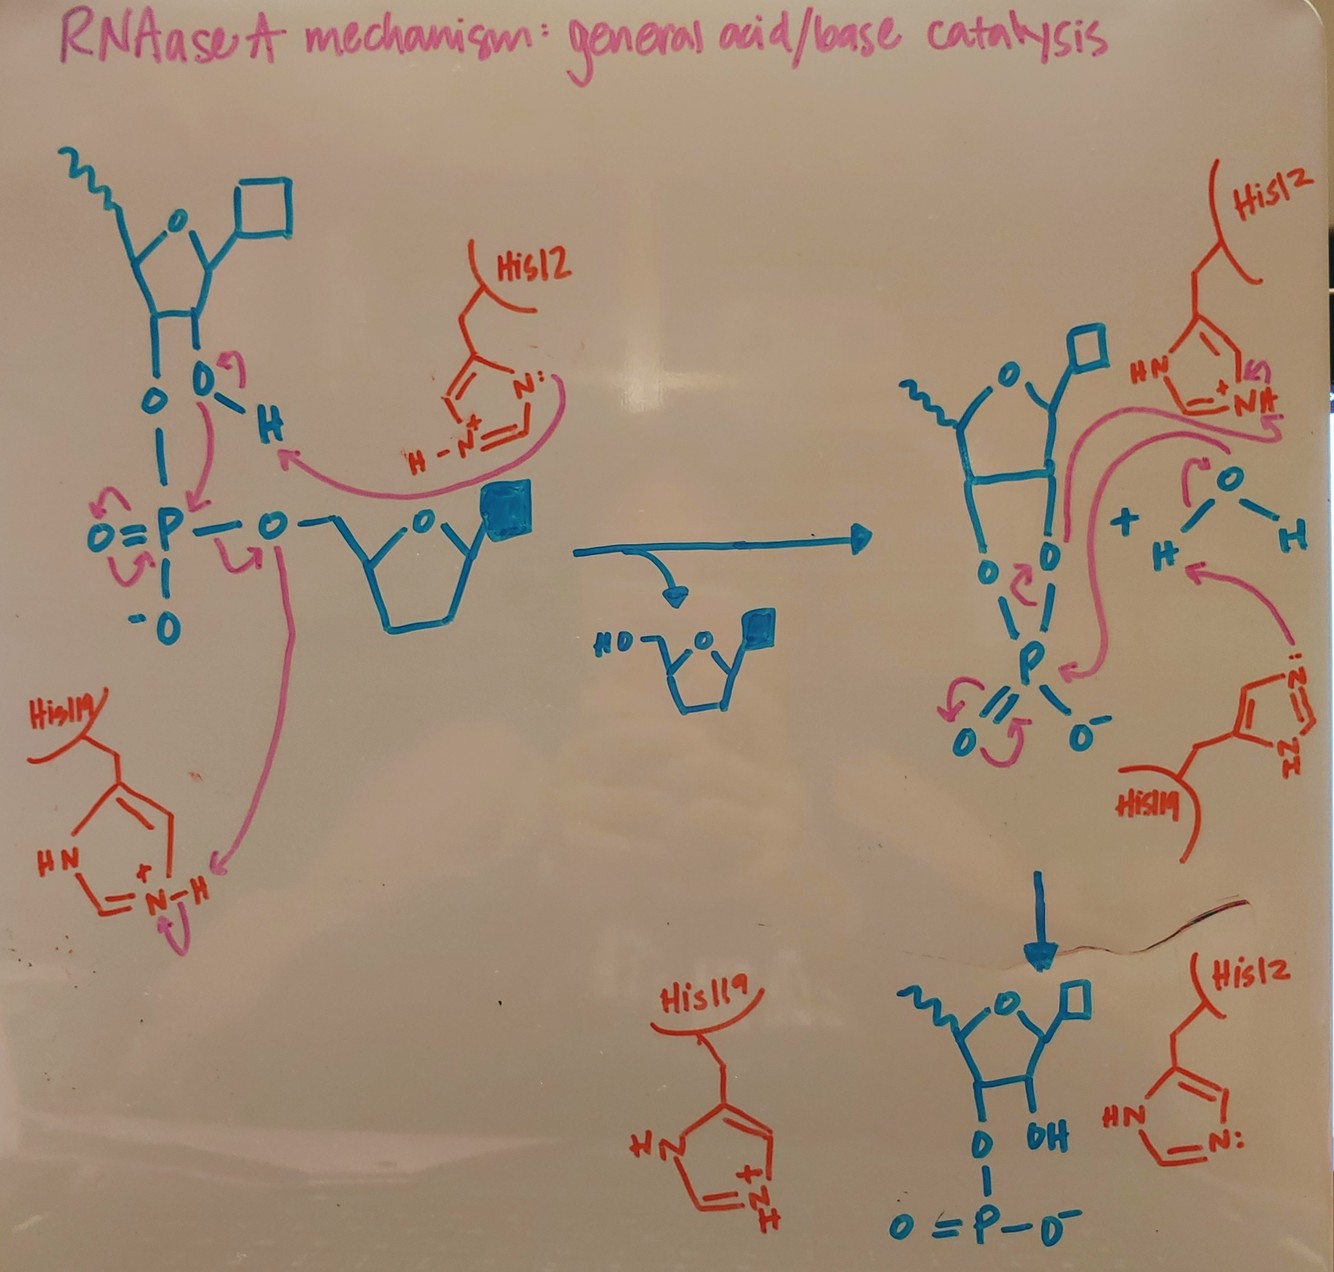 RNAase A mechanism: general acid/base catalysis
O
His12
His12
O
O
H
N:
H-N+
HN
+
NH
O
O=P-O
O
-O
+
O
H
H
O
O
HO
O
P
O
O-
N:
N
H
His119
His119
HN
+
N-H
His119
His12
O
HN
+
N
H
HN
N:
O
OH
O=P-O-